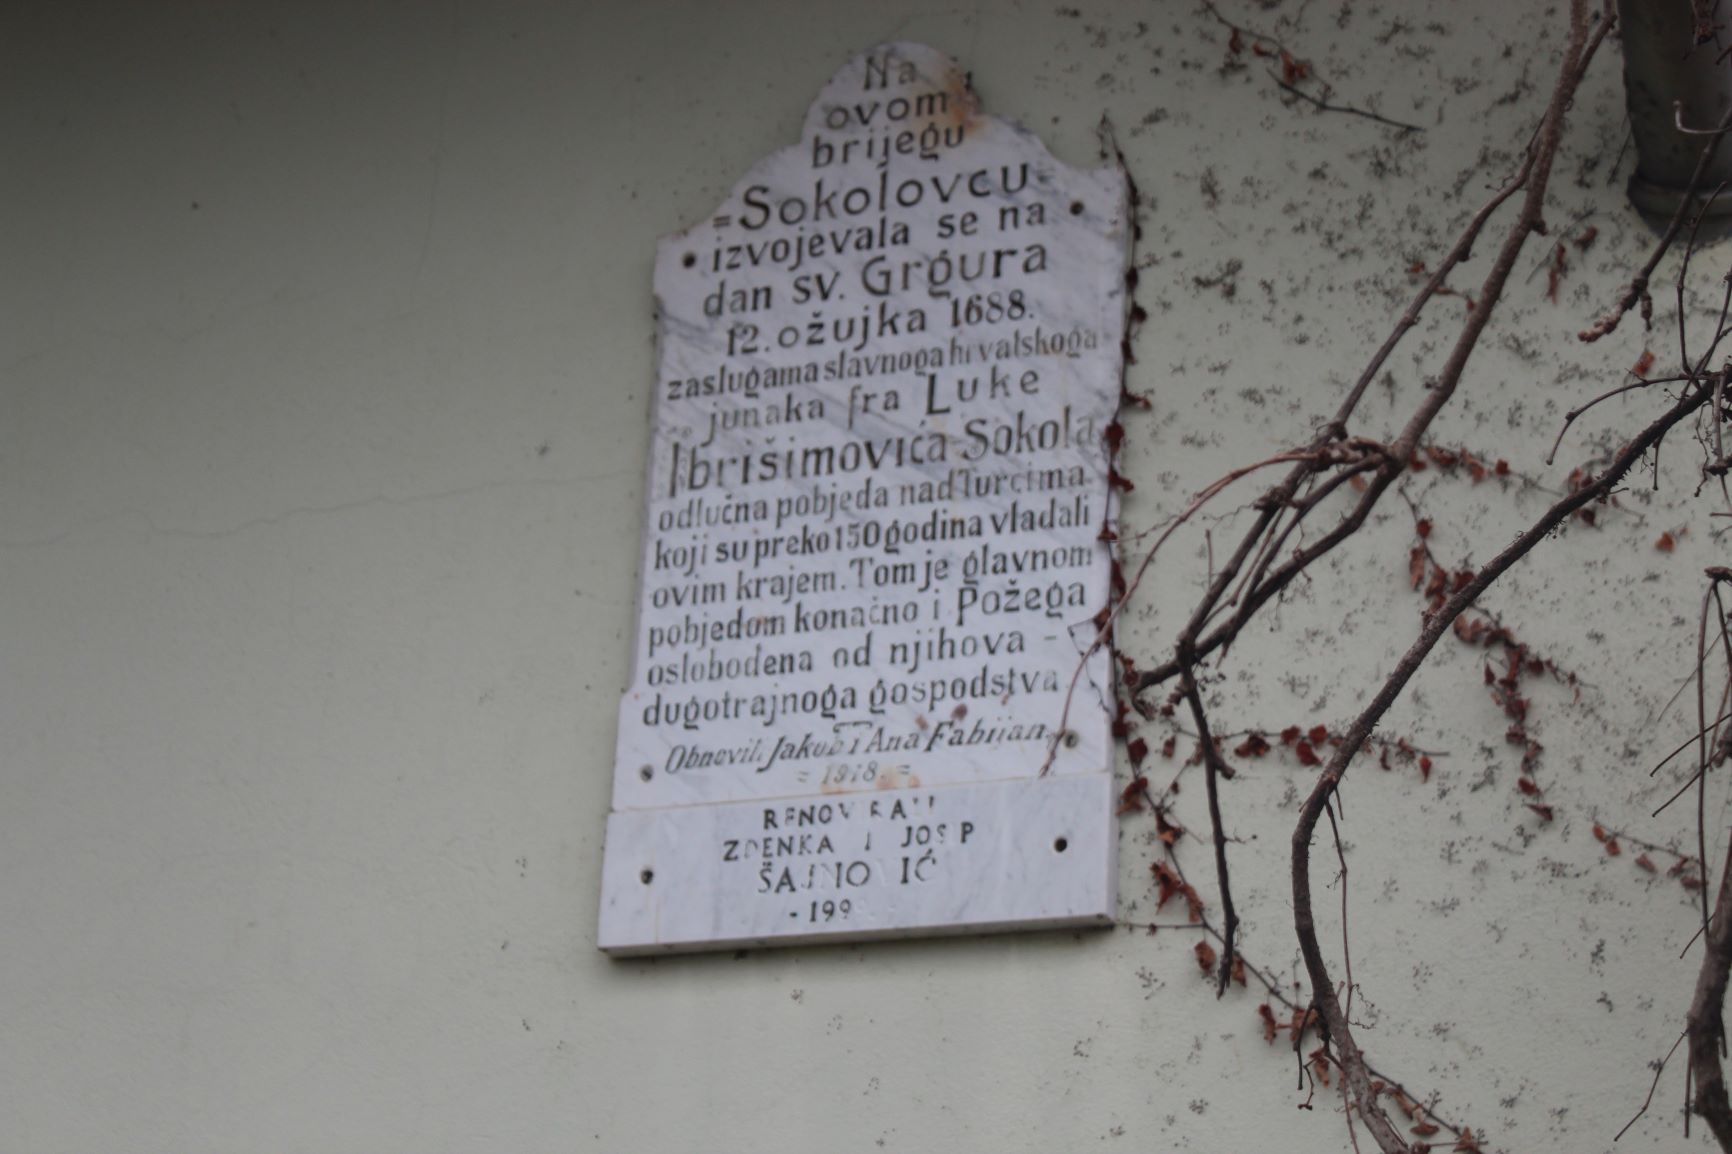 Na
ovom
brijegu
=Sokolovcu=
izvojevala se na
dan sv. Grgura
12. ožujka 1688.
zaslugama slavnoga hrvatskoga
junaka fra Luke
Ibrišimovića-Sokola
odlučna pobjeda nad Turcima
koji su preko 150 godina vladali
ovim krajem. Tom je glavnom
pobjedom konačno i Požega
oslobođena od njihova -
dugotrajnoga gospodstva.
Obnovili Jakob i Ana Fabijan.
= 1918. =
RENOVIRALI
ZDENKA I JOSIP
ŠAJNOVIĆ